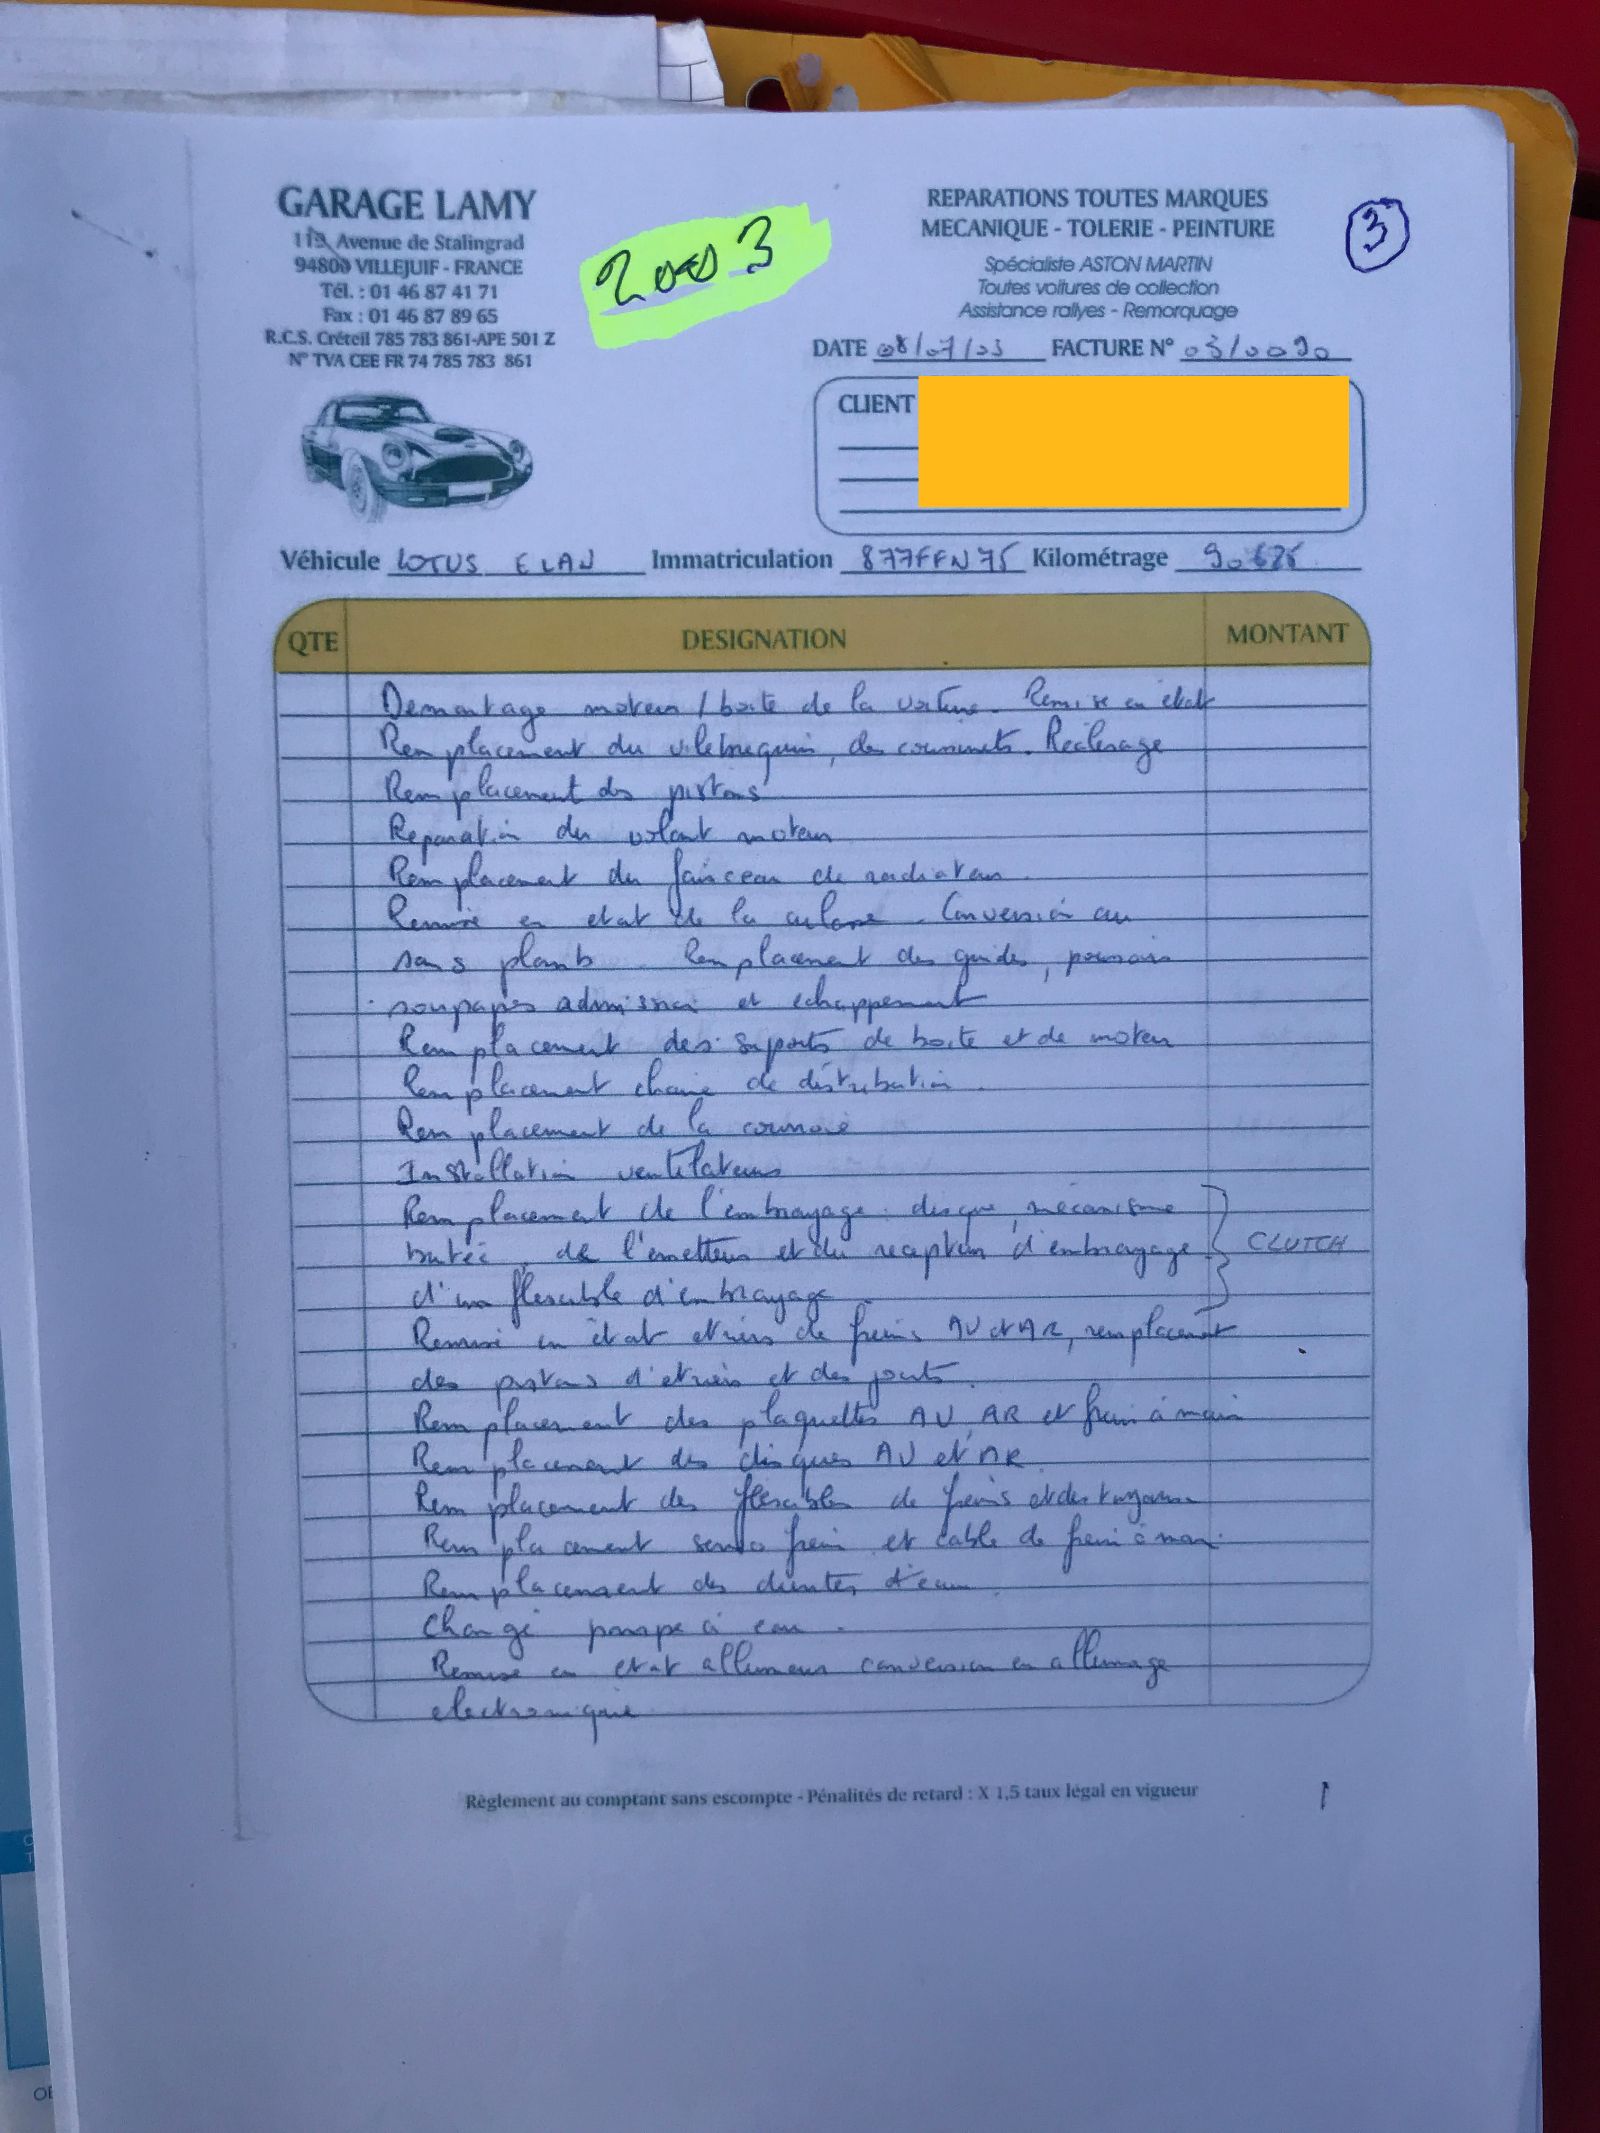 GARAGE LAMY
119, Avenue de Stalingrad
94800 VILLEJUIF - FRANCE
Tél. : 01 46 87 41 71
Fax : 01 46 87 89 65
R.C.S. Créteil 785 783 861-APE 501 Z
N° TVA CEE FR 74 785 783 861
2003
REPARATIONS TOUTES MARQUES
MECANIQUE - TOLERIE - PEINTURE
Spécialiste ASTON MARTIN
Toutes voitures de collection
Assistance rallyes - Remorquage
3
DATE 08/07/03 FACTURE N° 03/0090
CLIENT
Véhicule LOTUS ELAN Immatriculation 877FFN75 Kilométrage
QTE DESIGNATION MONTANT
Demontage moteur / boite de la voiture. Remise en etat
Remplacement du vilebrequin, des coussinets. Realesage
Remplacement des pistons
Reparation du volant moteur
Remplacement du faisceau de radiateur
Remise en etat de la culasse. Conversion au
sans plomb. Remplacement des guides, poussoirs
soupapes admission et echappement
Remplacement des supports de boite et de moteur
Remplacement chaine de distribution.
Remplacement de la courroie
Installation ventilateurs
Remplacement de l'embrayage: disque, mécanisme
butée, de l'emetteur et du recepteur d'embrayage CLUTCH
d'un flexible d'embrayage.
Remise en état etriers de freins AV et AR, remplacement
des pistons d'etriers et des joints.
Remplacement des plaquettes AV, AR et frein à main
Remplacement des disques AV et AR
Remplacement des flexibles de freins et des tuyaux
Remplacement servo frein et cable de frein à main.
Remplacement des durites d'eau.
Change pompe à eau.
Remise en etat allumeur conversion en allumage
electronique
Règlement au comptant sans escompte - Pénalités de retard : X 1,5 taux légal en vigueur
1